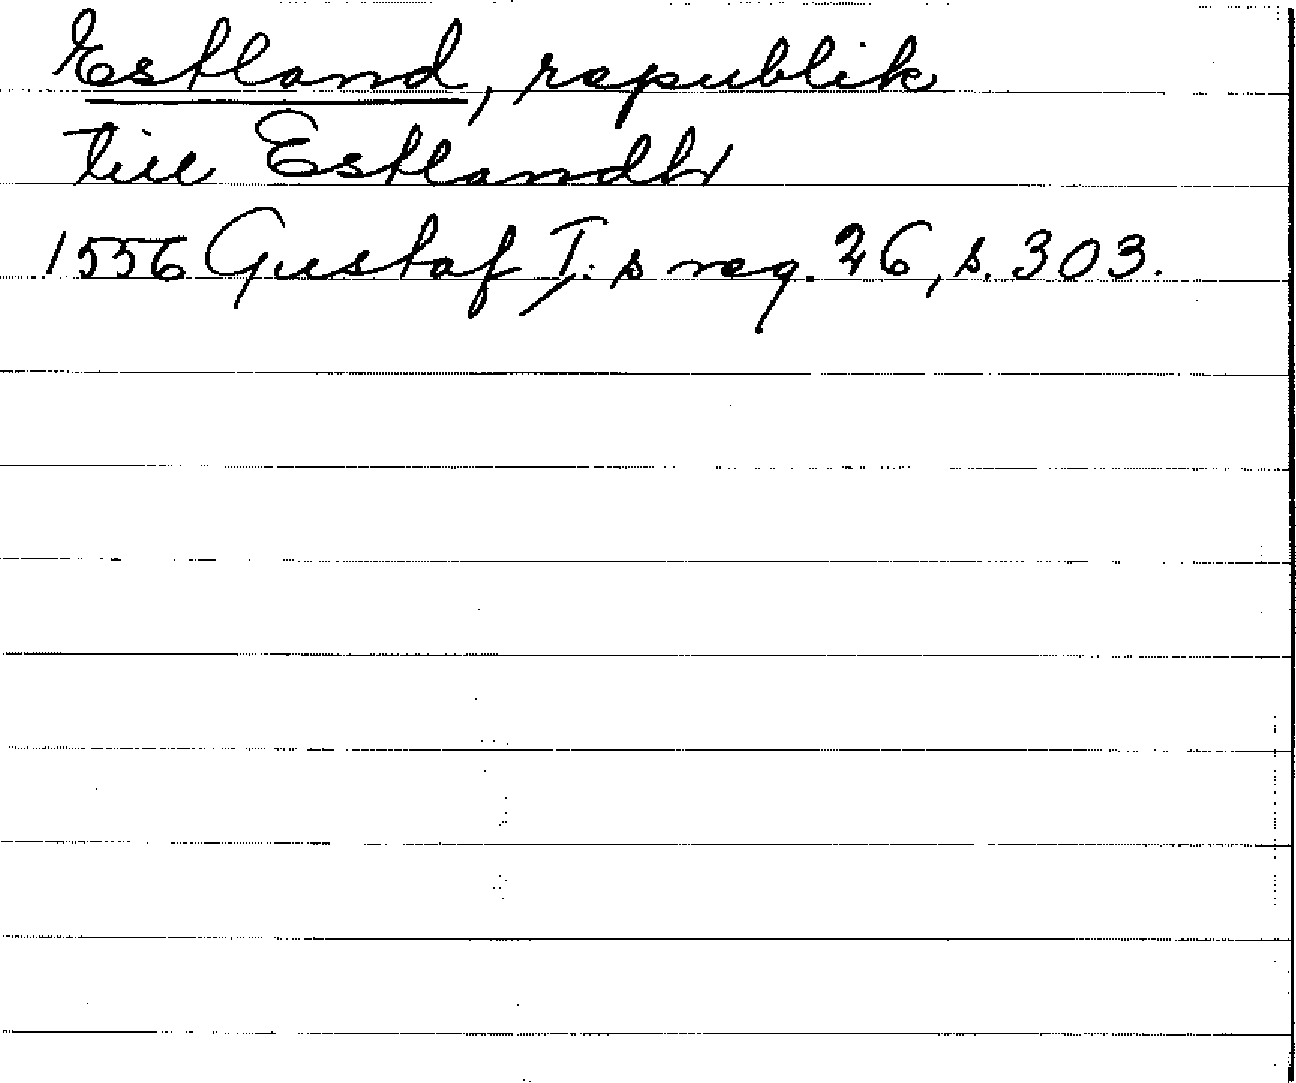 Estland, republik
till Estlandh
1556 Gustaf I:s reg. 26, s. 303.